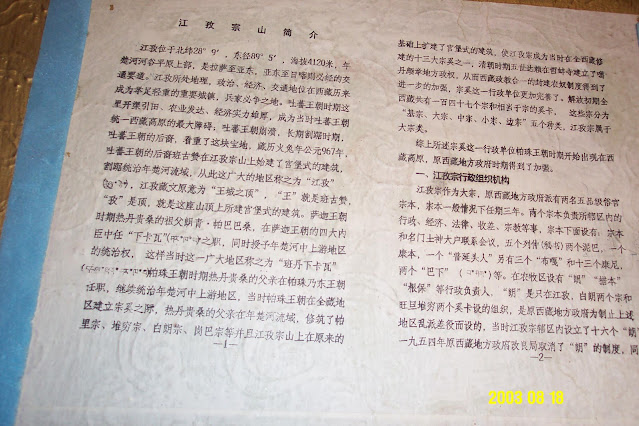 江孜宗山简介
江孜位于北纬28°9′，东径89°5′，海拔4120米，年
楚河河谷平原上部，是拉萨至亚东、亚东至日喀则必经的交
通要道。江孜所处地理、政治、经济、交通地位在西藏历来
成为举足轻重的重要城镇，兵家必争之地。吐蕃王朝时期这
里开渠引田、农业发达、经济实力雄厚，成为当时吐蕃王朝
统一西藏高原的最大障碍，吐蕃王朝崩溃，长期割踞时期，
吐蕃王朝的后裔，看重了这块宝地，藏历火兔年公元967年，
吐蕃王朝的后裔班古赞在江孜宗山上始建了宫堡式的建筑，
割踞统治年楚河流域，从此这广大的地区称之为“江孜”
，江孜藏文原意为“王城之顶”，“王”就是班古赞，
“孜”是顶，就是这座山顶上所建宫堡式的建筑。萨迦王朝
时期热丹贵桑的祖父朗青·帕巴巴桑，在萨迦王朝的四大内
臣中任“下卡瓦”之职，同时授予年楚河中上游地区
的统治权，这样当时这一广大地区称之为“班丹下卡瓦”
帕珠王朝时期热丹贵桑的父亲在帕珠乃东王朝
任职，继续统治年楚河中上游地区，当时帕珠王朝在全藏地
区建立宗奚之际，热丹贵桑的父亲在年楚河流域，修筑了帕
里宗、堆穷宗、白朗宗、岗巴宗等并且江孜宗山上在原来的
—1—
基础上扩建了宫堡式的建筑，使江孜宗成为当时在全西藏修
建的十三大宗奚之一，清朝时期五世达赖在哲蚌寺建立了噶
丹颇章地方政权，从而西藏政教合一的封建农奴制度得到了
进一步的加强，宗奚这一行政单位更加完善了。解放初期全
西藏共有一百四十七个宗和相当于宗的奚卡，这些宗分为
“基宗、大宗、中宗、小宗、边宗”五个种类，江孜宗属于
大宗类。
综上所述宗奚这一行政单位帕珠王朝时期开始出现在西
藏高原，原西藏地方政府时期得到了加强。
一、江孜宗行政组织机构
江孜宗作为大宗，原西藏地方政府派有两名五品级俗官
宗本，宗本一般情况下任期三年。两个宗本负责所辖区内的
行政、经济、法律、收差、宗教等事，宗本下面设有：宗本
和名门士绅大户联系会议，五个列售(秘书)两个泥巴，一个
康本，一个“晋涎夫人”另有三个“布嘎”和十三个康尼，
两个“巴下”等。在农牧区设有“朗”“措本”
“根保”等行政负责人，“朗”是只在江孜、白朗两个宗和
旺旦堆穷两个奚卡设的组织，是原西藏地方政府为制止上述
地区乱派差役而设的，当时江孜宗辖区内设立了十六个“朗”
一九五四年原西藏地方政府改良局取消了“朗”的制度，同
—2—
2003 08 18